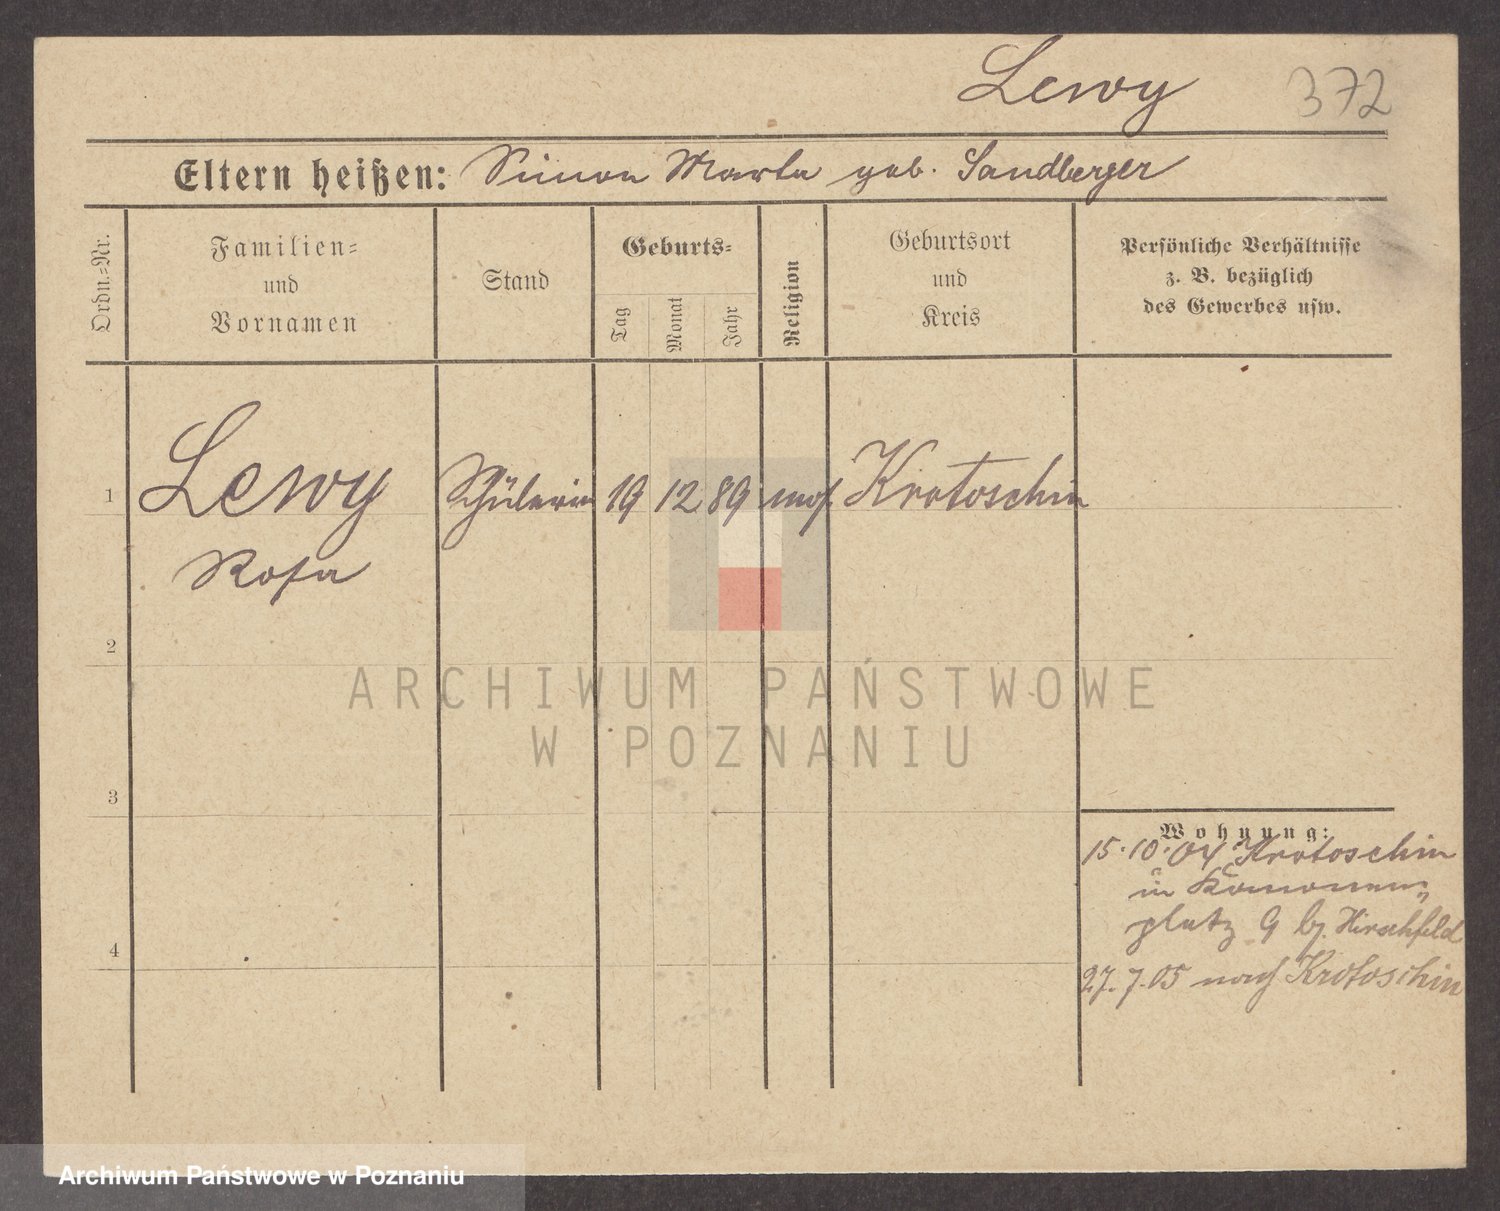 Lewy 372
Eltern heißen: Simon Marta geb. Sandberger
Ordn.-Nr.
Familien-
und
Vornamen
Stand
Geburts-
Tag
Monat
Jahr
Religion
Geburtsort
und
Kreis
Persönliche Verhältnisse
z. B. bezüglich
des Gewerbes usw.
1 Lewy Schülerin 19 12 89 mos. Krotoschin
Rosa
2
3
4
Wohnung:
15.10.04 Krotoschin
in
platz 9 bj. Hirschfeld
27.7.05 nach Krotoschin
ARCHIWUM PAŃSTWOWE
W POZNANIU
Archiwum Państwowe w Poznaniu